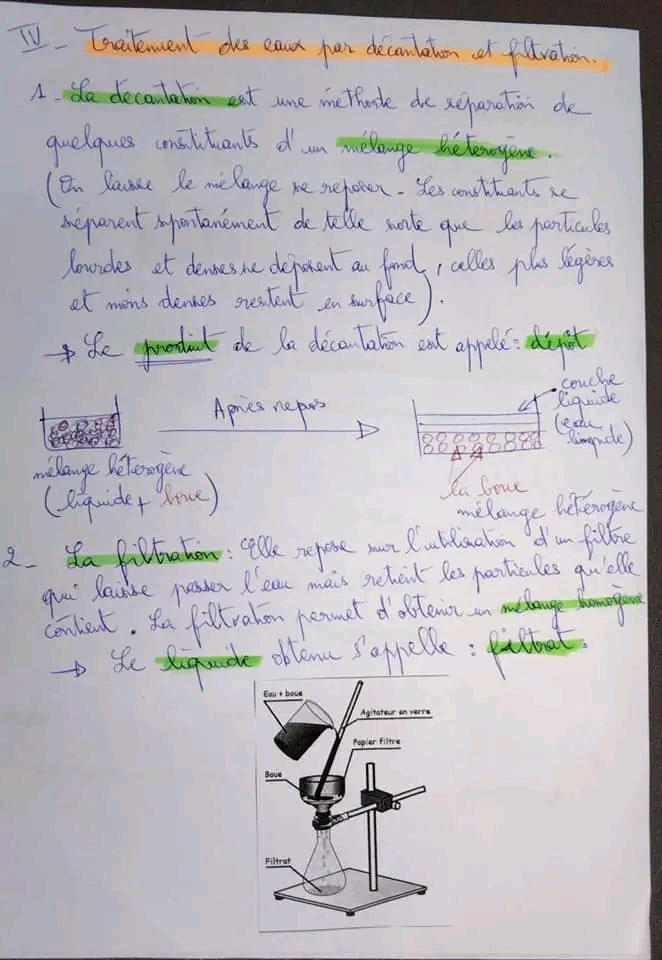 IV - Traitement des eaux par décantation et filtration.
1 - La décantation est une méthode de séparation de
quelques constituants d'un mélange hétérogène.
(On laisse le mélange se reposer - Les constituants se
séparent spontanément de telle sorte que les particules
lourdes et denses se déposent au fond, celles plus légères
et moins denses restent en surface).
→ Le produit de la décantation est appelé : dépôt
Après repos
couche
liquide
(eau
limpide)
mélange hétérogène
(liquide + boue)
la boue
mélange hétérogène
2 - La filtration : Elle repose sur l'utilisation d'un filtre
qui laisse passer l'eau mais retient les particules qu'elle
contient. La filtration permet d'obtenir un mélange homogène
→ Le liquide obtenu s'appelle : filtrat.
Eau + boue
Agitateur en verre
Papier filtre
Boue
Filtrat